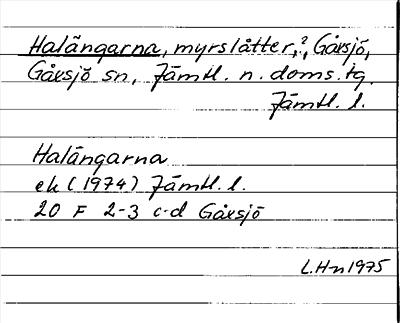 Halängarna, myrslåtter, ?, Gåxsjö,
Gåxsjö sn, Jämtl. n. doms. tg.
Jämtl. l.
Halängarna
ek (1974) Jämtl. l.
20 F 2-3 c-d Gåxsjö
L. Hn 1975